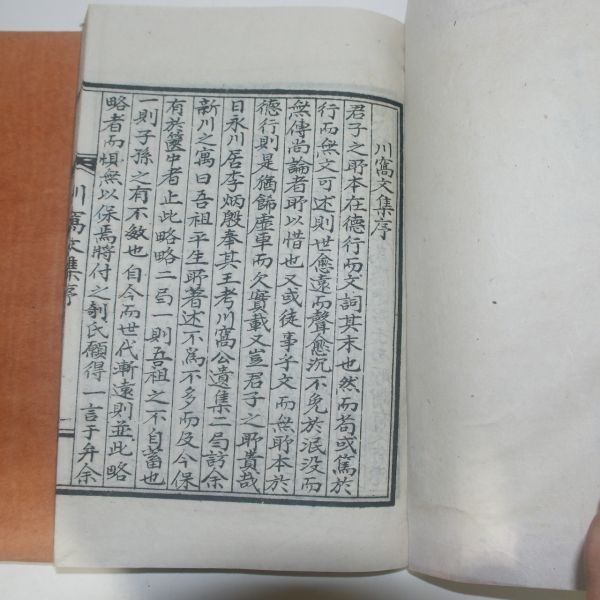 川窩文集序
君子之所本在德行而文詞其末也然而苟或篤於
行而無文可述則世愈遠而聲愈沉不免於泯没而
無傳尚論者所以惜也又或徒事乎文而無所本於
德行則是猶歸虛車而欠實載又豈君子之所貴哉
日永川居李炳殷奉其王考川窩公遺集二局訪余
新川之寓曰吾祖平生所著述不爲不多而及今保
有於篋中者止此略略二局一則吾祖之不自蓄也
一則子孫之有不敏也自今而世代漸遠則並此略
略者而惧無以保焉將付之剞氏願得一言于弁余
川窩文集序
一